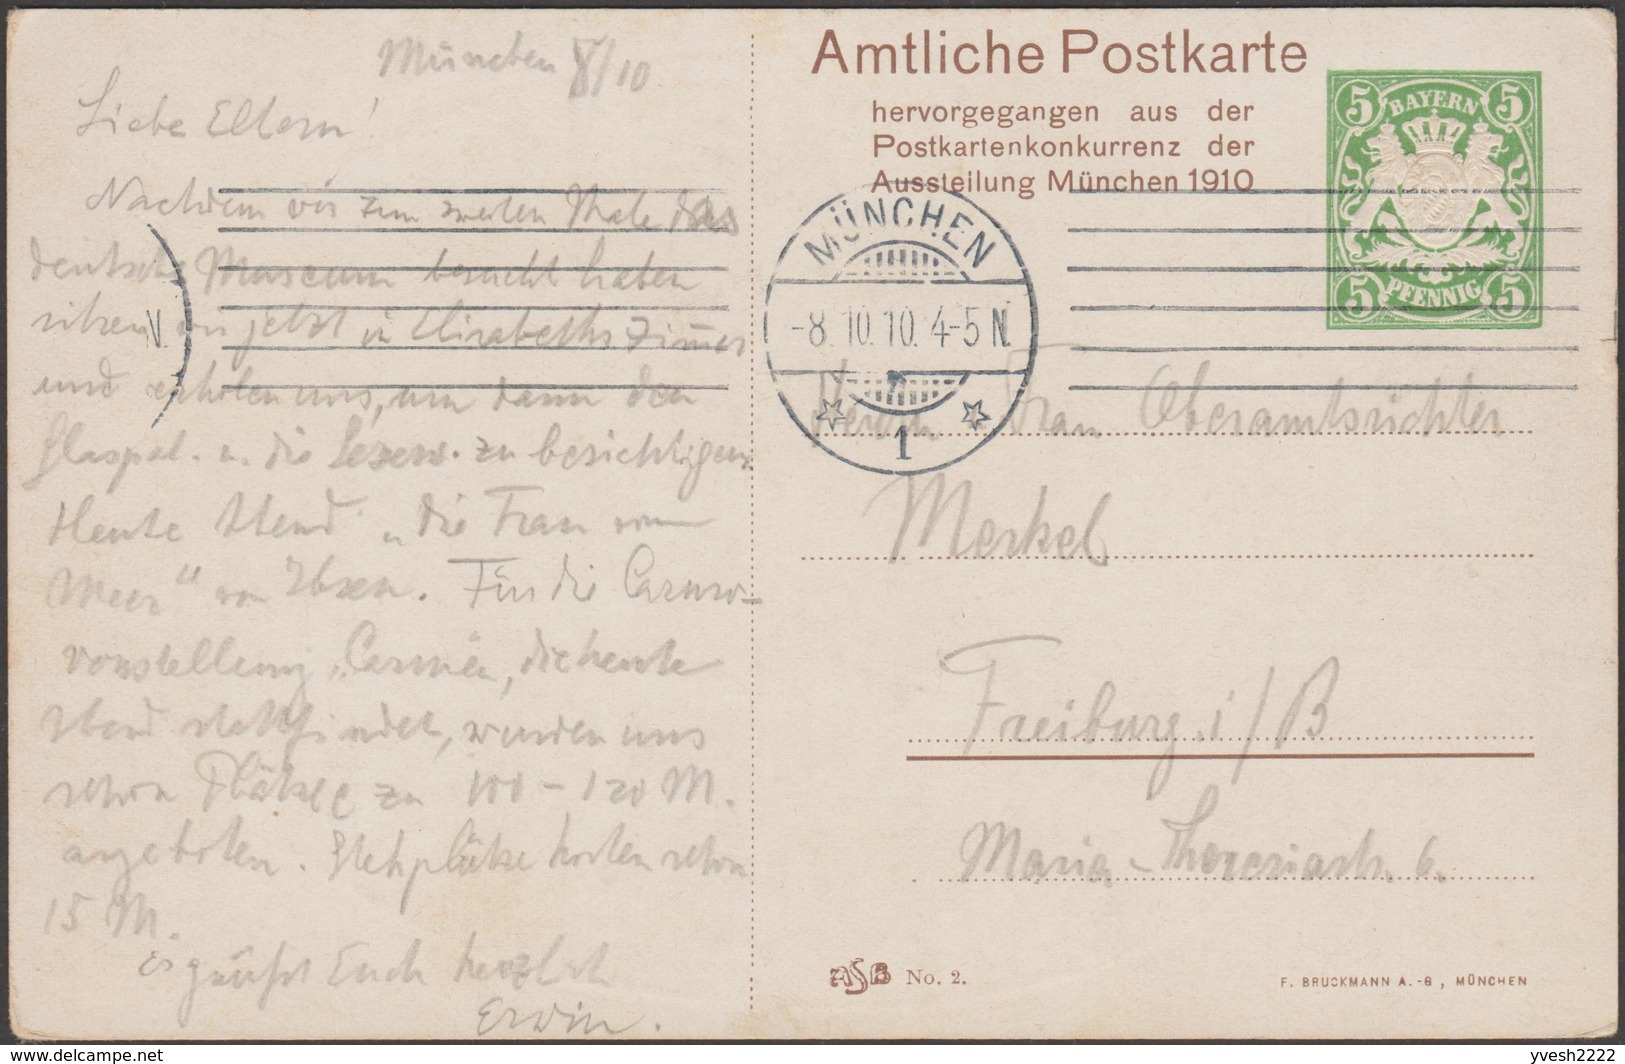 München 8/10
Liebe Eltern!
Nachdem wir zum zweiten Male das
deutsche Museum besucht haben
sitzen wir jetzt in Elisabeths Zimmer
und erholen uns, um dann den
Glaspal. u. die Sezess. zu besichtigen
Heute Abend „die Frau vom
Meer“ von Ibsen. Für die Caruso-
vorstellung „Carmen, die heute
Abend stattfindet, wurden uns
schon Plätze zu 100 – 120 M.
angeboten. Stehplätze kosten schon
15 M.
Es grüßt Euch herzlich
Erwin.
Amtliche Postkarte
hervorgegangen aus der
Postkartenkonkurrenz der
Ausstellung München 1910
BAYERN
5 5
5 5
PFENNIG
MÜNCHEN
-8.10.10. 4-5 N.
1
N.
Frau Oberamtsrichter
Merkel
Freiburg i/B
Maria-Theresiastr. 6.
ASB No. 2.
F. BRUCKMANN A.-G, MÜNCHEN
delcampe.net
yvesh2222